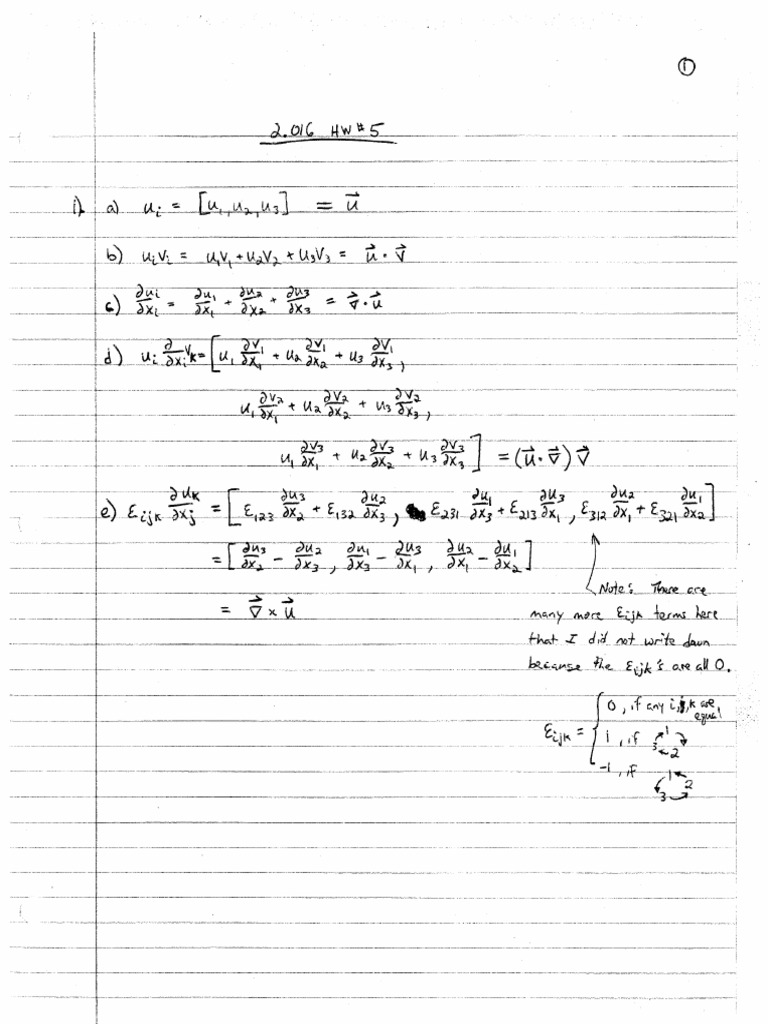 ①
2.016 HW#5
1) a) uᵢ = [u₁, u₂, u₃] = u⃗
b) uᵢvᵢ = u₁v₁ + u₂v₂ + u₃v₃ = u⃗ · v⃗
c) ∂uᵢ/∂xᵢ = ∂u₁/∂x₁ + ∂u₂/∂x₂ + ∂u₃/∂x₃ = ∇⃗ · u⃗
d) uᵢ ∂/∂xᵢ vₖ = [u₁ ∂v₁/∂x₁ + u₂ ∂v₁/∂x₂ + u₃ ∂v₁/∂x₃,
u₁ ∂v₂/∂x₁ + u₂ ∂v₂/∂x₂ + u₃ ∂v₂/∂x₃,
u₁ ∂v₃/∂x₁ + u₂ ∂v₃/∂x₂ + u₃ ∂v₃/∂x₃] = (u⃗ · ∇⃗) v⃗
e) εᵢⱼₖ ∂uₖ/∂xⱼ = [ε₁₂₃ ∂u₃/∂x₂ + ε₁₃₂ ∂u₂/∂x₃, ε₂₃₁ ∂u₁/∂x₃ + ε₂₁₃ ∂u₃/∂x₁, ε₃₁₂ ∂u₂/∂x₁ + ε₃₂₁ ∂u₁/∂x₂]
= [∂u₃/∂x₂ − ∂u₂/∂x₃, ∂u₁/∂x₃ − ∂u₃/∂x₁, ∂u₂/∂x₁ − ∂u₁/∂x₂]
= ∇⃗ × u⃗
Note: There are
many more εᵢⱼₖ terms here
that I did not write down
because the εᵢⱼₖ's are all 0.
εᵢⱼₖ = { 0, if any i,j,k are equal
1, if 1 2 3
-1, if 1 2 3